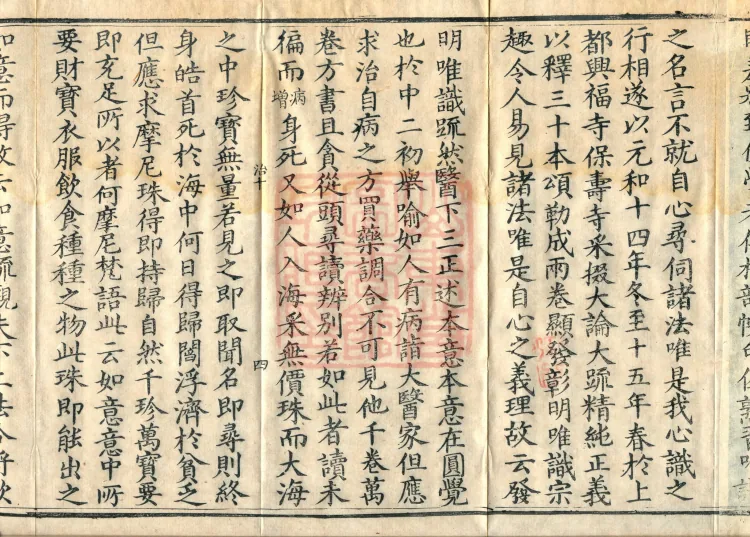 之名言不就自心尋伺諸法唯是我心識之
行相遂以元和十四年冬至十五年春於上
都興福寺保壽寺采掇大論大䟽精純正義
以釋三十本頌勒成兩卷顯發彰明唯識宗
趣令人易見諸法唯是自心之義理故云發
明唯識䟽然醫下三正述本意本意在圓覺
也於中二初舉喻如人有病詣大醫家但應
求治自病之方買藥調合不可見他千卷萬
卷方書且貪從頭尋讀辨別若如此者讀未
徧而病增身死又如人入海采無價珠而大海
治十 四
之中珍寶無量若見之即取聞名即尋則終
身皓首死於海中何日得歸閻浮濟於貧乏
但應求摩尼珠得即持歸自然千珍萬寶要
即充足所以者何摩尼梵語此云如意意中所
要財寶衣服飲食種種之物此珠即能出之
如意而得故云如意䟽觀夫下二法合